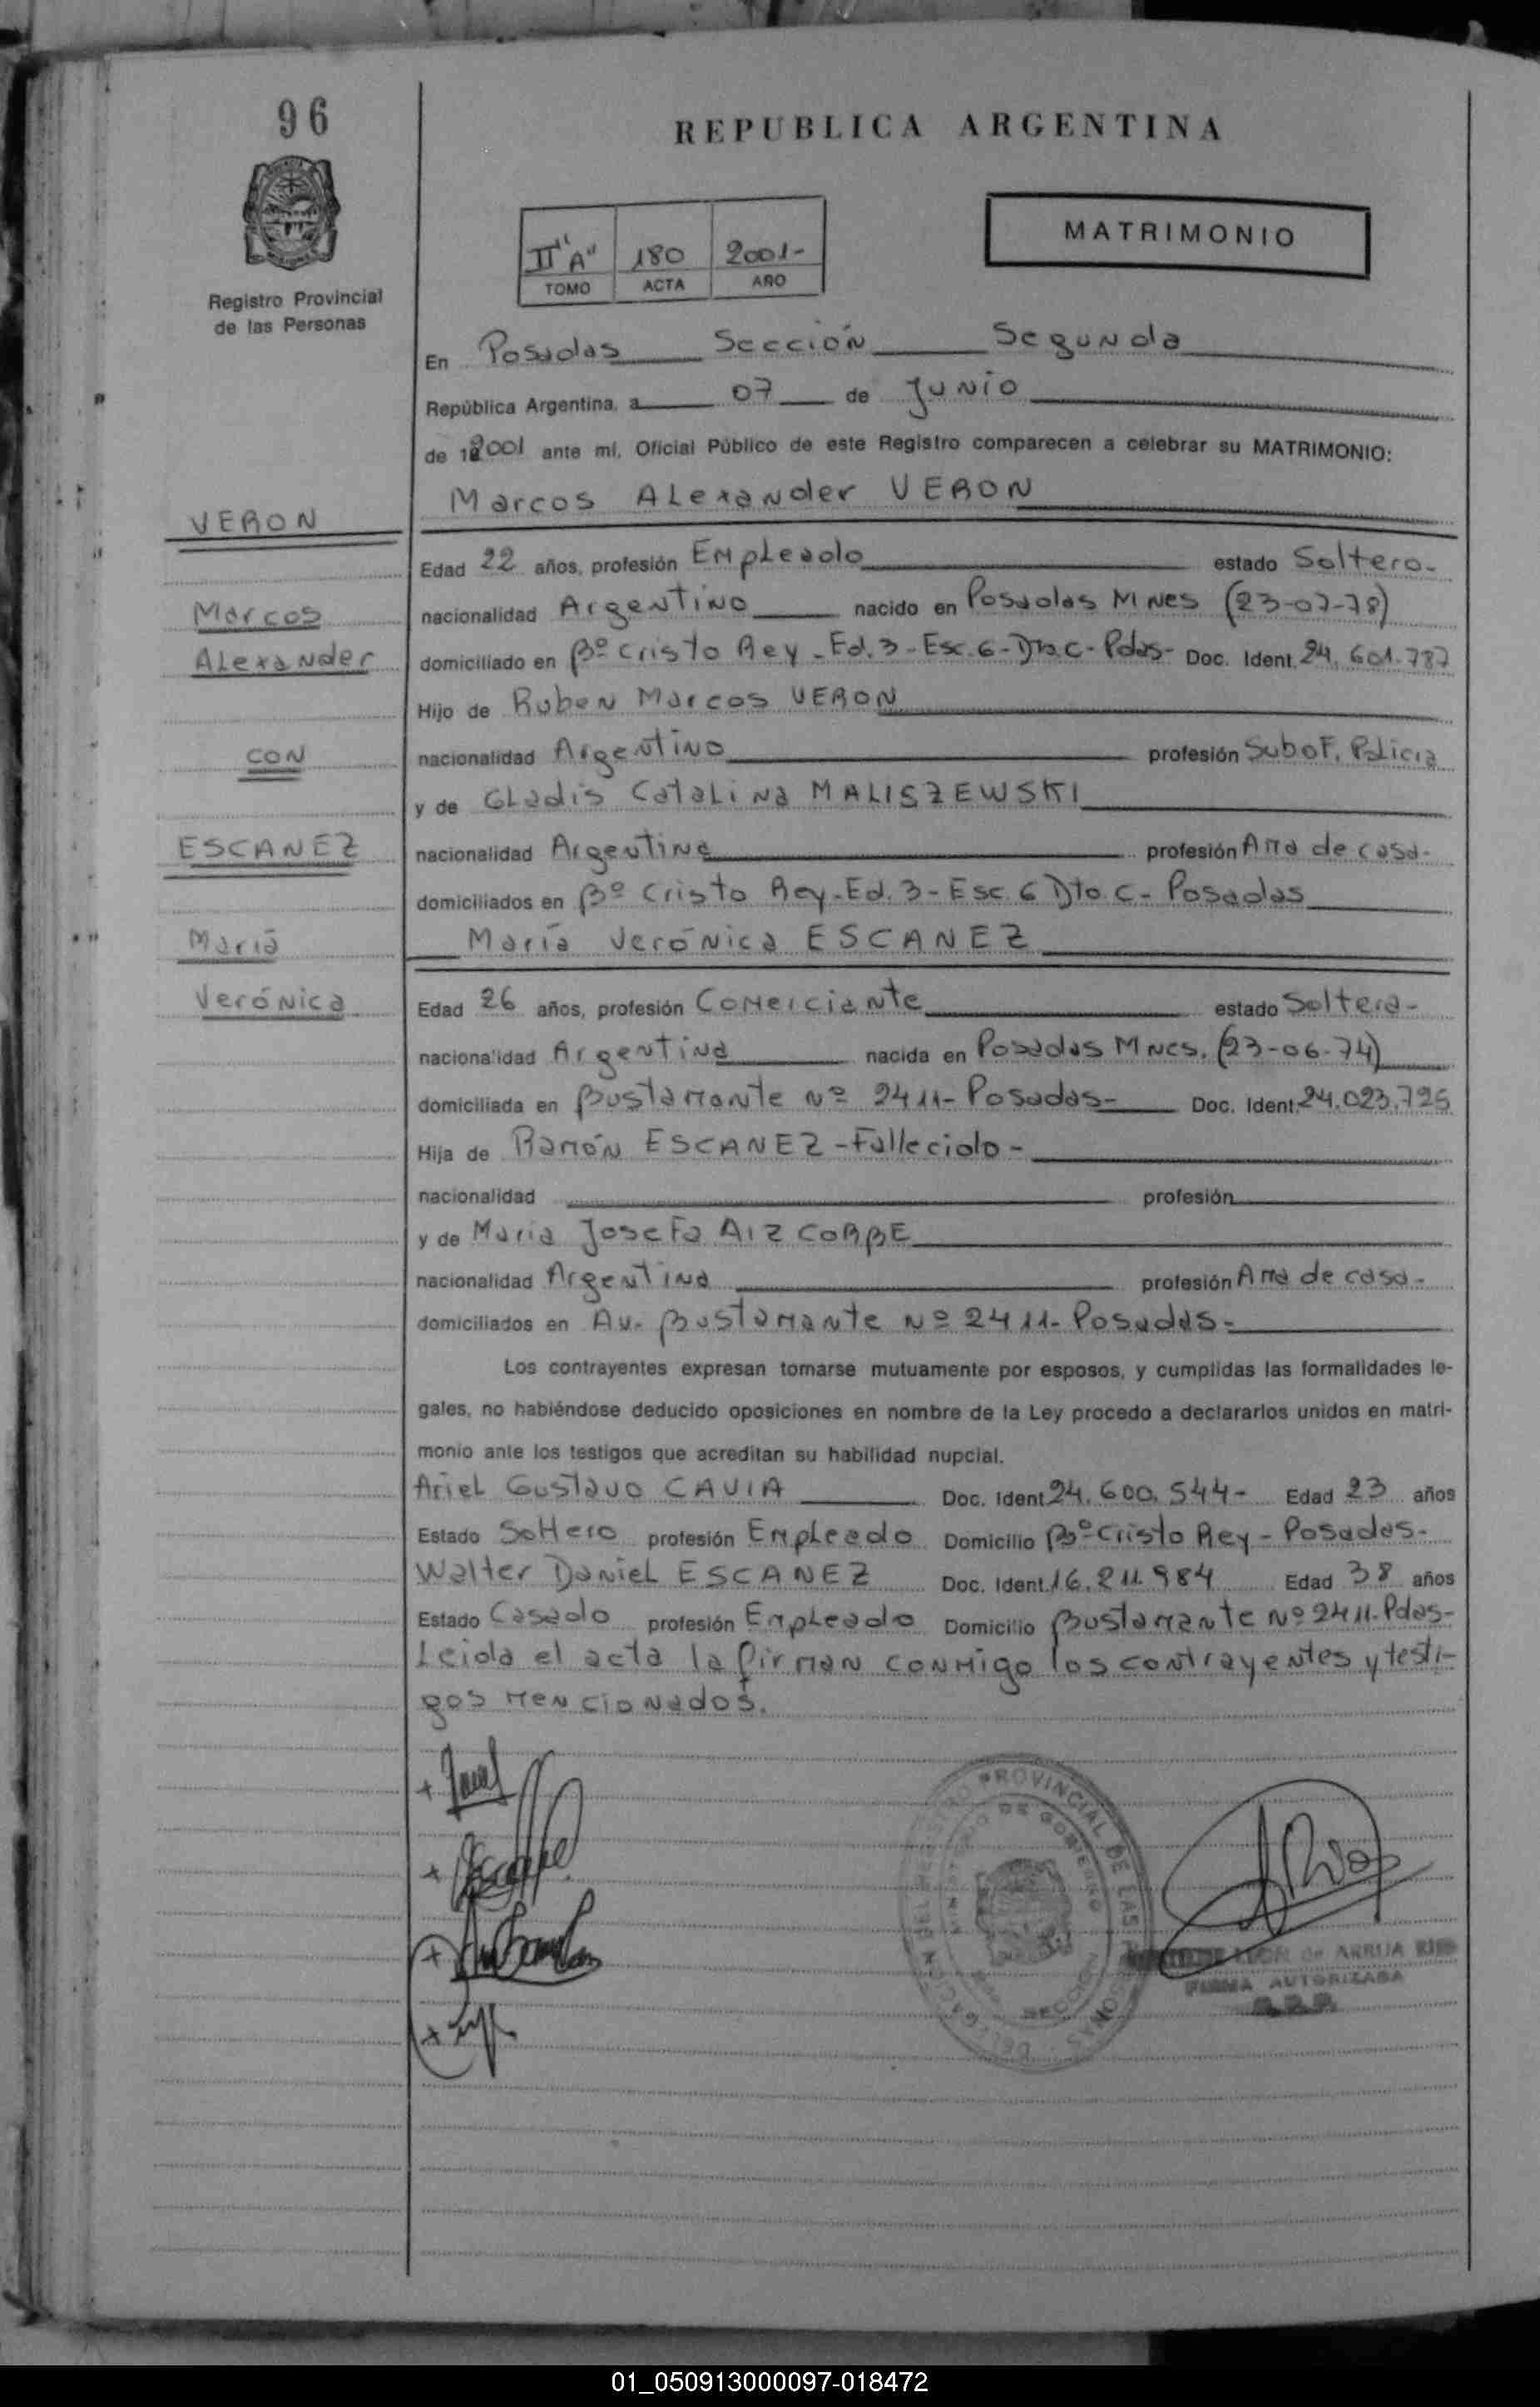 96
REPUBLICA ARGENTINA
MATRIMONIO
II "A" 180 2001-
TOMO ACTA AÑO
Registro Provincial
de las Personas
En Posadas Sección Segunda
República Argentina, a 07 de Junio
de 2001 ante mí, Oficial Público de este Registro comparecen a celebrar su MATRIMONIO:
Marcos Alexander VERON
VERON
Edad 22 años, profesión Empleado estado Soltero-
Marcos
nacionalidad Argentino nacido en Posadas Mnes (23-07-78)
Alexander
domiciliado en Bº Cristo Rey - Ed. 3 - Esc. 6 - Dto. C - Pdas- Doc. Ident. 24.601.787
Hijo de Ruben Marcos VERON
CON
nacionalidad Argentino profesión SubOf. Policia
y de Gladis Catalina MALISZEWSKI
ESCANEZ
nacionalidad Argentina profesión Ama de casa-
domiciliados en Bº Cristo Rey - Ed. 3 - Esc 6 Dto. C - Posadas
María
María Verónica ESCANEZ
Verónica
Edad 26 años, profesión Comerciante estado Soltera-
nacionalidad Argentina nacida en Posadas Mnes. (23-06-74)
domiciliada en Bustamante Nº 2411- Posadas- Doc. Ident. 24.023.725
Hija de Ramón ESCANEZ - Fallecido -
nacionalidad profesión
y de Maria Josefa AIZCORBE
nacionalidad Argentina profesión Ama de casa-
domiciliados en Av. Bustamante Nº 2411- Posadas-
Los contrayentes expresan tomarse mutuamente por esposos, y cumplidas las formalidades le-
gales, no habiéndose deducido oposiciones en nombre de la Ley procedo a declararlos unidos en matri-
monio ante los testigos que acreditan su habilidad nupcial.
Ariel Gustavo CAVIA Doc. Ident. 24.600.544- Edad 23 años
Estado Soltero profesión Empleado Domicilio Bº Cristo Rey - Posadas-
Walter Daniel ESCANEZ Doc. Ident. 16.211.984 Edad 38 años
Estado Casado profesión Empleado Domicilio Bustamante Nº 2411-Pdas-
Leida el acta la firman conmigo los contrayentes y testi-
gos mencionados.
PROVINCIAL DE LAS PERSONAS
DE GOBIERNO
de ARRUA
FIRMA AUTORIZADA
01_050913000097-018472